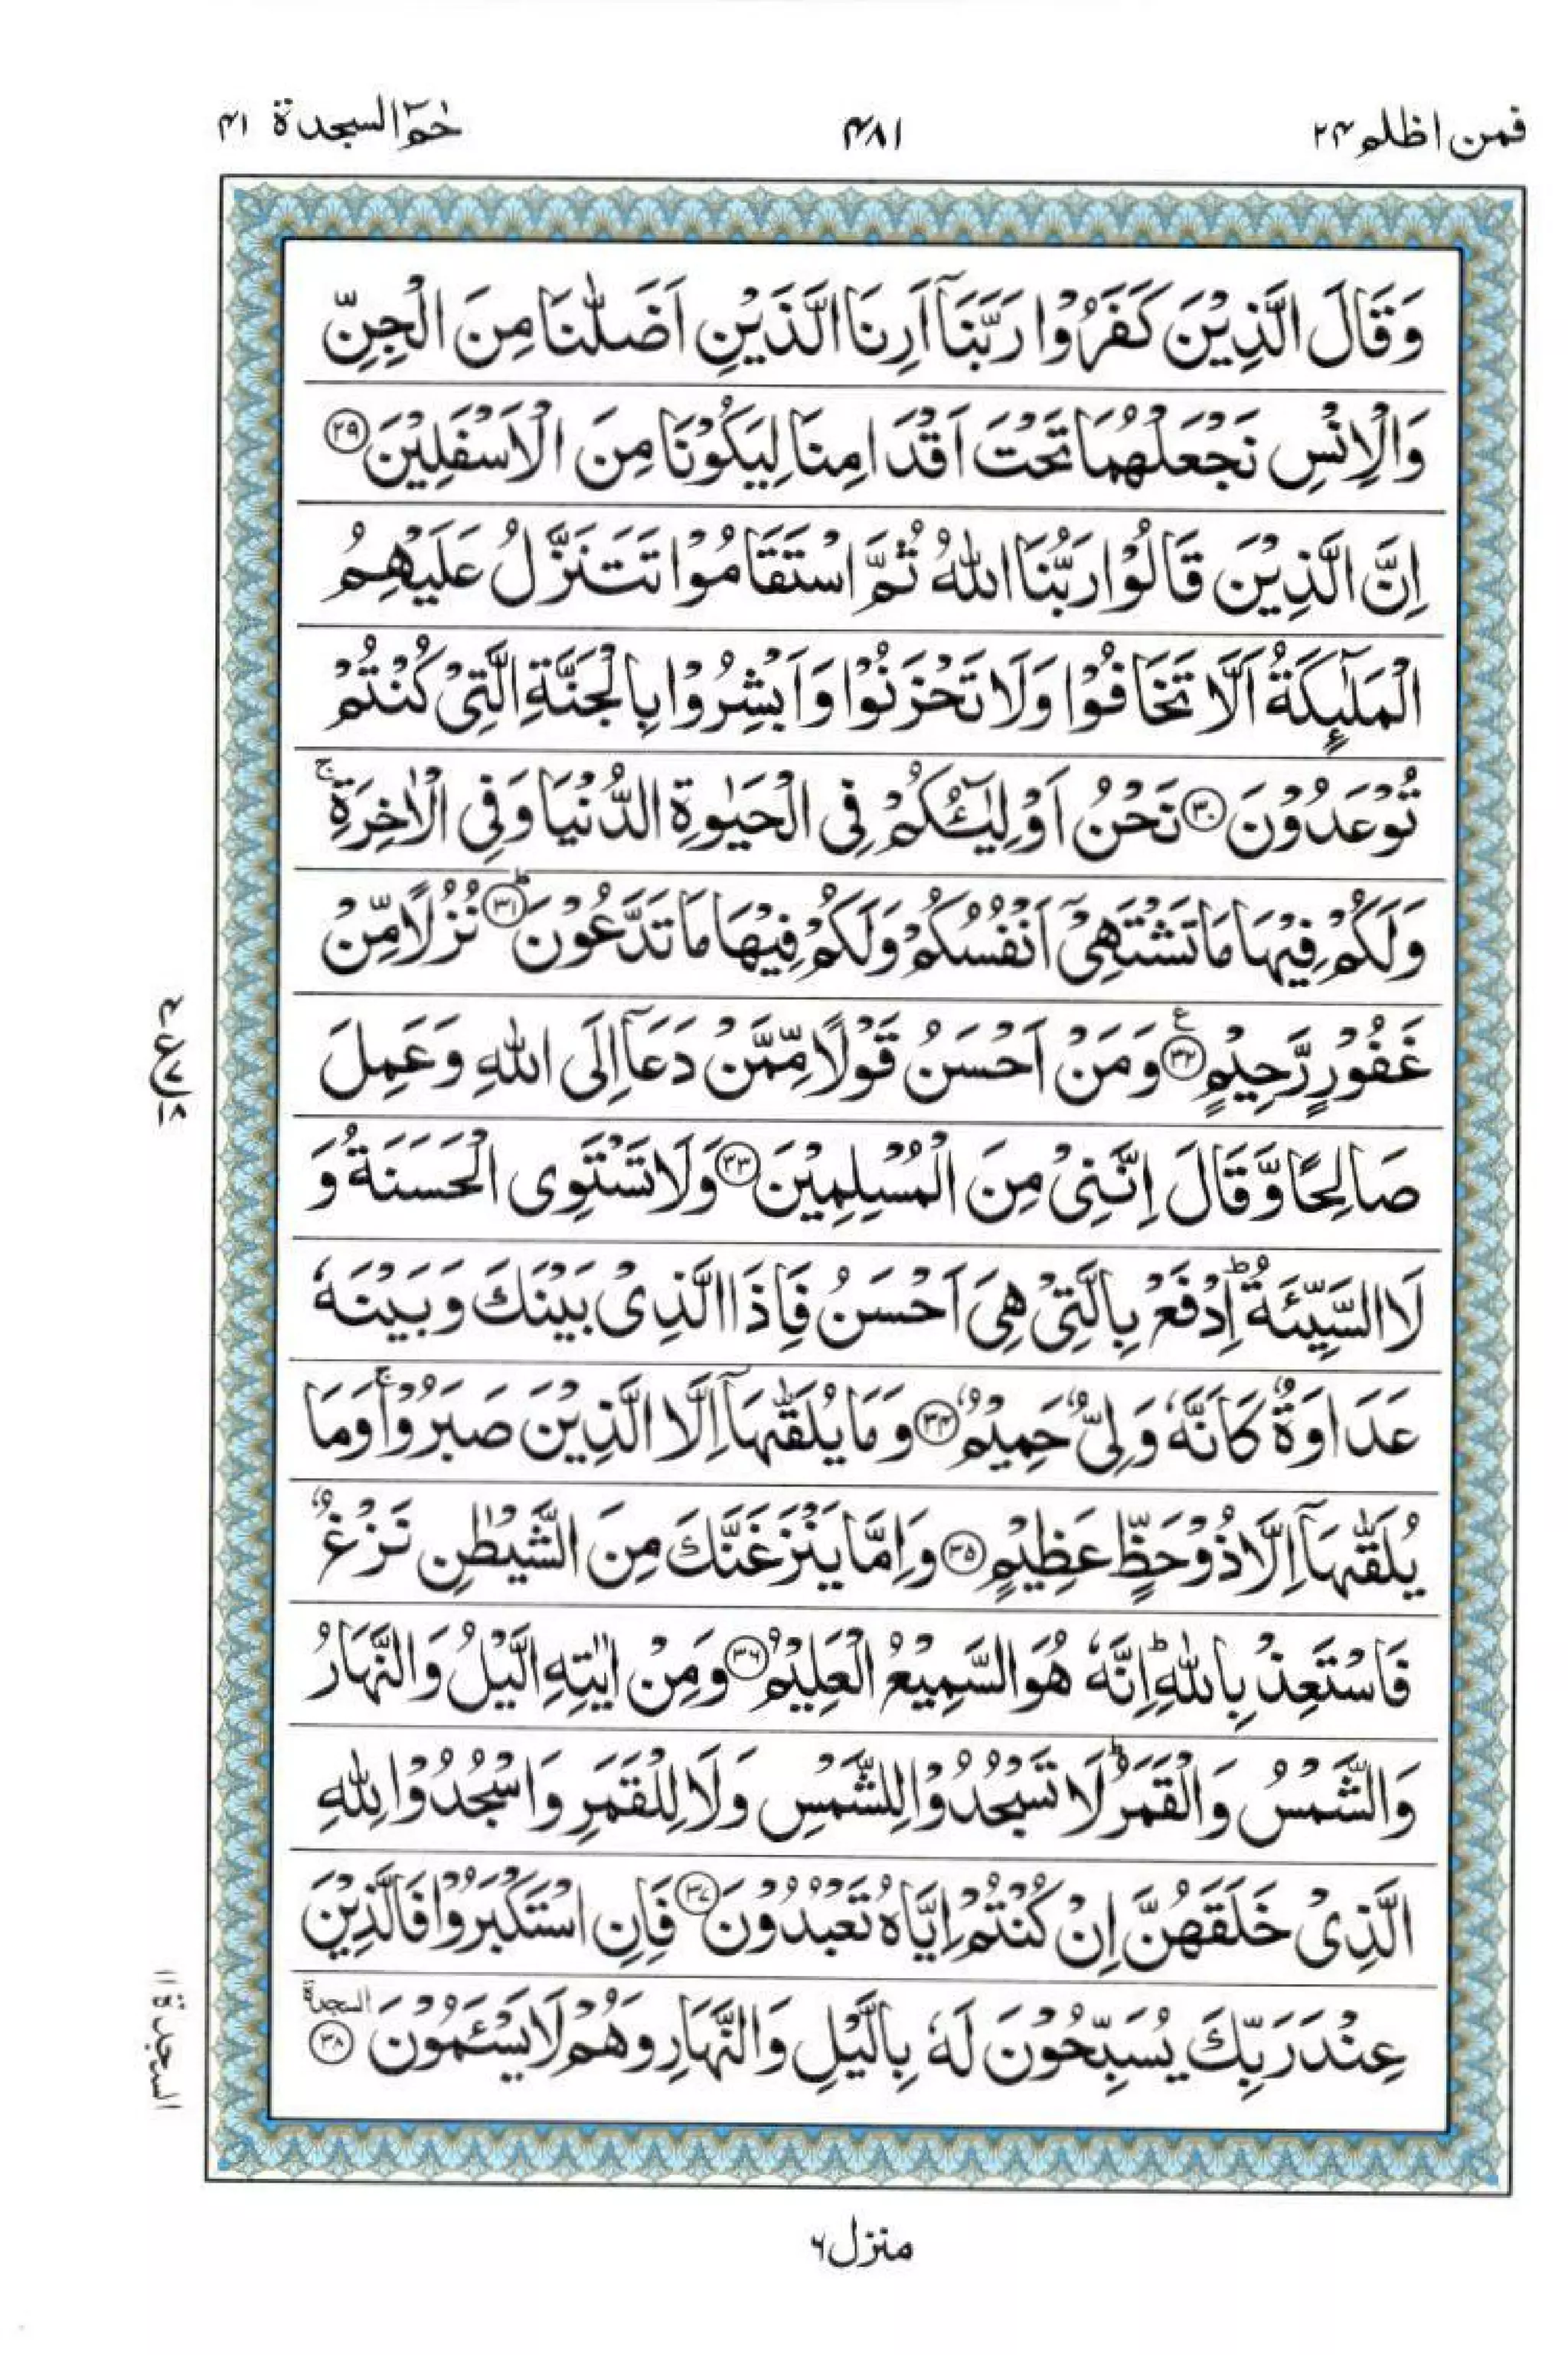 فمن اظلم ٢٤
٤٨١
حٰمٓ السجدة ٤١
وَقَالَ الَّذِيْنَ كَفَرُوْا رَبَّنَاۤ اَرِنَا الَّذَيْنِ اَضَلّٰنَا مِنَ الْجِنِّ
وَالْاِنْسِ نَجْعَلْهُمَا تَحْتَ اَقْدَامِنَا لِيَكُوْنَا مِنَ الْاَسْفَلِيْنَ ﴿٢٩﴾
اِنَّ الَّذِيْنَ قَالُوْا رَبُّنَا اللّٰهُ ثُمَّ اسْتَقَامُوْا تَتَنَزَّلُ عَلَيْهِمُ
الْمَلٰٓئِكَةُ اَلَّا تَخَافُوْا وَلَا تَحْزَنُوْا وَاَبْشِرُوْا بِالْجَنَّةِ الَّتِيْ كُنْتُمْ
تُوْعَدُوْنَ ﴿٣٠﴾ نَحْنُ اَوْلِيٰٓؤُكُمْ فِي الْحَيٰوةِ الدُّنْيَا وَفِي الْاٰخِرَةِ ۚ
وَلَكُمْ فِيْهَا مَا تَشْتَهِيْۤ اَنْفُسُكُمْ وَلَكُمْ فِيْهَا مَا تَدَّعُوْنَ ﴿٣١﴾ؕ نُزُلًا مِّنْ
غَفُوْرٍ رَّحِيْمٍ ﴿٣٢﴾ ع وَمَنْ اَحْسَنُ قَوْلًا مِّمَّنْ دَعَاۤ اِلَى اللّٰهِ وَعَمِلَ
صَالِحًا وَّقَالَ اِنَّنِيْ مِنَ الْمُسْلِمِيْنَ ﴿٣٣﴾ وَلَا تَسْتَوِى الْحَسَنَةُ وَ
لَا السَّيِّئَةُ ؕ اِدْفَعْ بِالَّتِيْ هِيَ اَحْسَنُ فَاِذَا الَّذِيْ بَيْنَكَ وَبَيْنَهٗ
عَدَاوَةٌ كَاَنَّهٗ وَلِيٌّ حَمِيْمٌ ﴿٣٤﴾ وَمَا يُلَقّٰىهَاۤ اِلَّا الَّذِيْنَ صَبَرُوْا ۚ وَمَا
يُلَقّٰىهَاۤ اِلَّا ذُوْ حَظٍّ عَظِيْمٍ ﴿٣٥﴾ وَاِمَّا يَنْزَغَنَّكَ مِنَ الشَّيْطٰنِ نَزْغٌ
فَاسْتَعِذْ بِاللّٰهِ ؕ اِنَّهٗ هُوَ السَّمِيْعُ الْعَلِيْمُ ﴿٣٦﴾ وَمِنْ اٰيٰتِهِ الَّيْلُ وَالنَّهَارُ
وَالشَّمْسُ وَالْقَمَرُ ؕ لَا تَسْجُدُوْا لِلشَّمْسِ وَلَا لِلْقَمَرِ وَاسْجُدُوْا لِلّٰهِ
الَّذِيْ خَلَقَهُنَّ اِنْ كُنْتُمْ اِيَّاهُ تَعْبُدُوْنَ ﴿٣٧﴾ فَاِنِ اسْتَكْبَرُوْا فَالَّذِيْنَ
عِنْدَ رَبِّكَ يُسَبِّحُوْنَ لَهٗ بِالَّيْلِ وَالنَّهَارِ وَهُمْ لَا يَسْئَمُوْنَ ﴿٣٨﴾ السجدة
السجدة ١١
منزل ٦